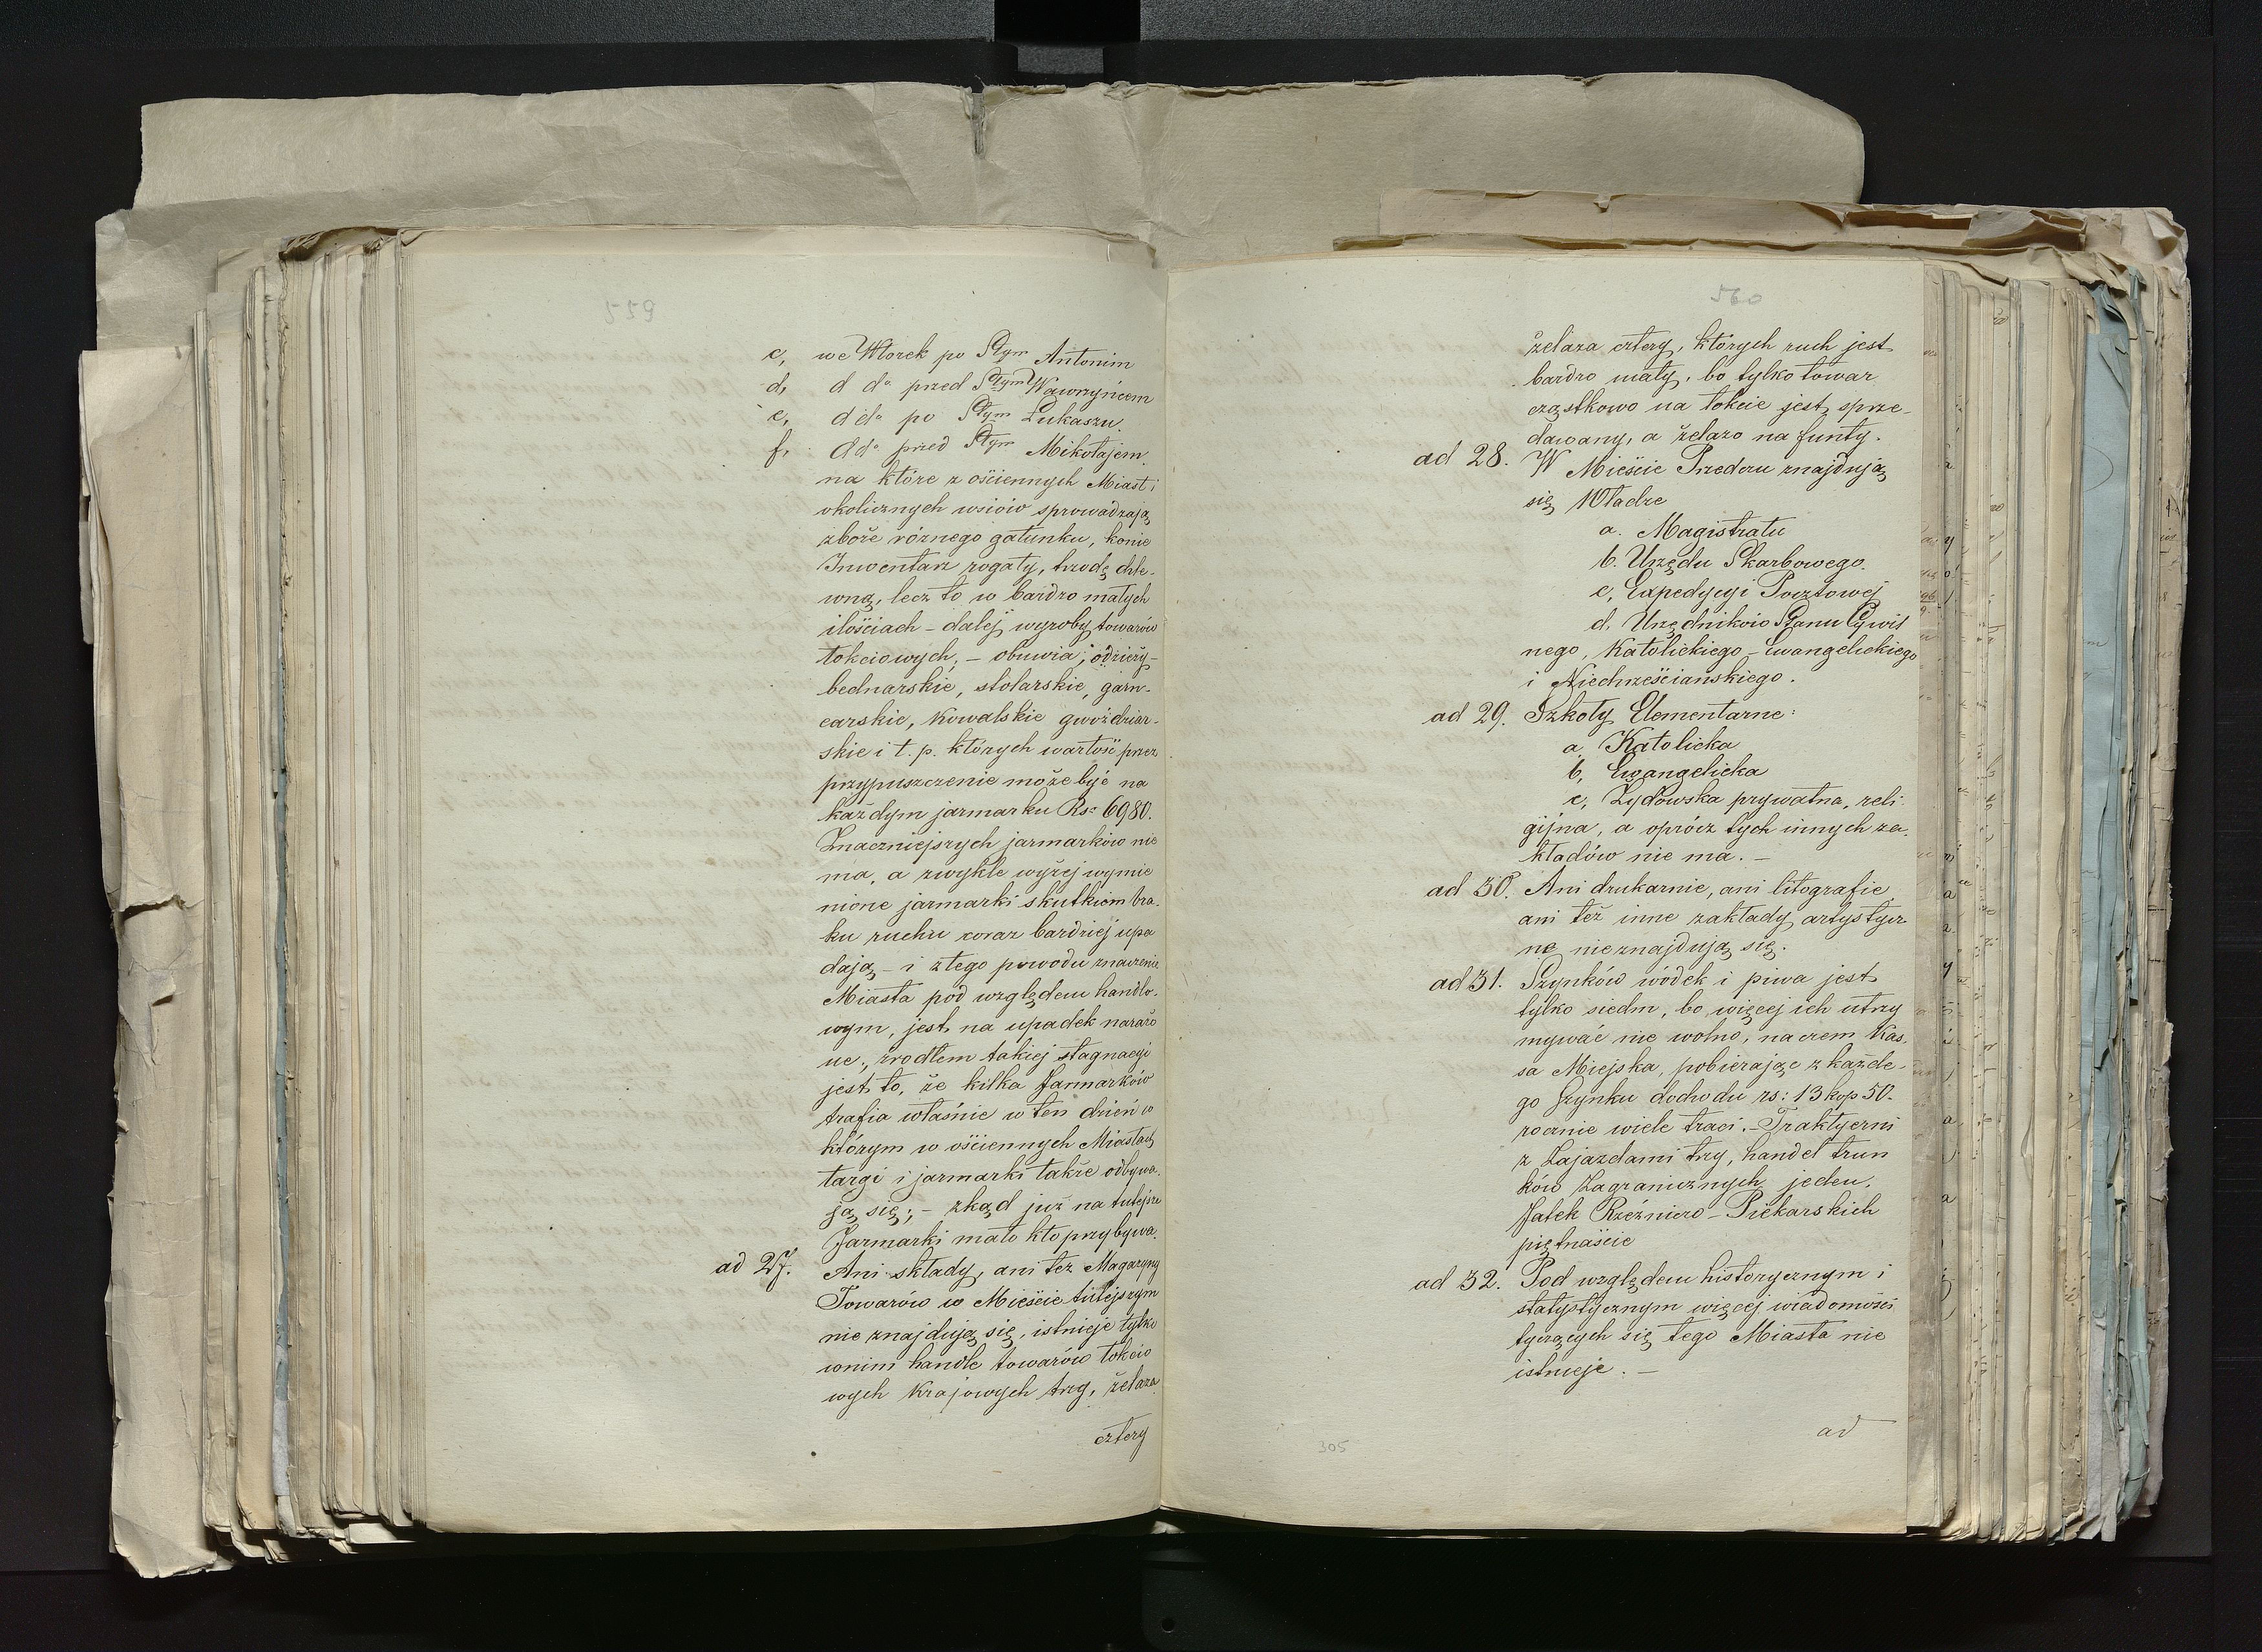 559
c, we Wtorek po Stym Antonim
d, d do przed Stym Wawrzyńcem
e, d do po Stym Łukaszu.
f, d do przed Stym Mikołajem.
na które z ościennych Miast i
okolicznych wsiów sprowadzają
zboże róznego gatunku, konie
Inwentarz rogaty, trzodę chle-
wną, lecz to w bardzo małych
ilościach – daléj wyroby towarów
łokciowych, – obuwia, odzieży –
bednarskie, stolarskie, garn-
carskie, kowalskie gwoździar-
skie i t. p. których wartość przez
przypuszczenie może byc na
każdym jarmarku Rs: 6980.
Znaczniejszych jarmarków nie
ma, a zwykle wyżej wymie
nione jarmarki skutkiem bra-
ku ruchu coraz bardziéj upa
dają – i z tego powodu znaczenie
Miasta pod względem handlo-
wym, jest na upadek narażo
ne; zrodłem takiej stagnacyi
jest to, że kilka Jarmarków
trafia własnie w ten dzień w
którym w ościennych Miastach
targi i jarmarki także odbywa-
ją się; – zkąd już na tutejsze
Jarmarki mało kto przybywa.
ad 27. Ani składy, ani też Magazyny
Towarów w Mieście tutejszym
nie znajdują się, istnieje tylko
wnim handle towarów łokcio
wych krajowych trzy, żelaza
cztery
560
żelaza cztery, których ruch jest
bardzo mały, bo tylko towar
cząstkowo na łokcie jest sprze-
dawany, a żelazo na funty.
ad 28. W Mieście Przedczu znajdują
się Władze
a. Magistratu
b. Urzędu Skarbowego.
c, Expedycyi Pocztowéj
d. Urzędników Stanu Cywil
nego, Katolickiego – Ewangelickiego
i Niechrześcianskiego.
ad 29. Szkoły Elementarne:
a, Katolicka
b, Ewangelicka
c, Żydowska prywatna, reli
gijna, a oprócz tych innych za-
kładów nie ma. –
ad 30. Ani drukarnie, ani litografie
ani też inne zakłady artystycz
ne nieznajdują się.
ad 31. Szynków wódek i piwa jest
tylko siedm, bo więcej ich utrzy
mywać nie wolno, na czem Kas-
sa Miejska, pobierając z każde-
go Szynku dochodu rs: 13 kop 50.
rocznie wiele traci. – Traktyerni
z Zajazdami trzy, handel trun
ków Zagranicznych jeden.
Jatek Rzeźniczo – Piekarskich
piętnaście
ad 32. Pod względem historycznym i
statystycznym więcej wiadomości
tyczących się tego Miasta nie
istnieje. –
ad
305